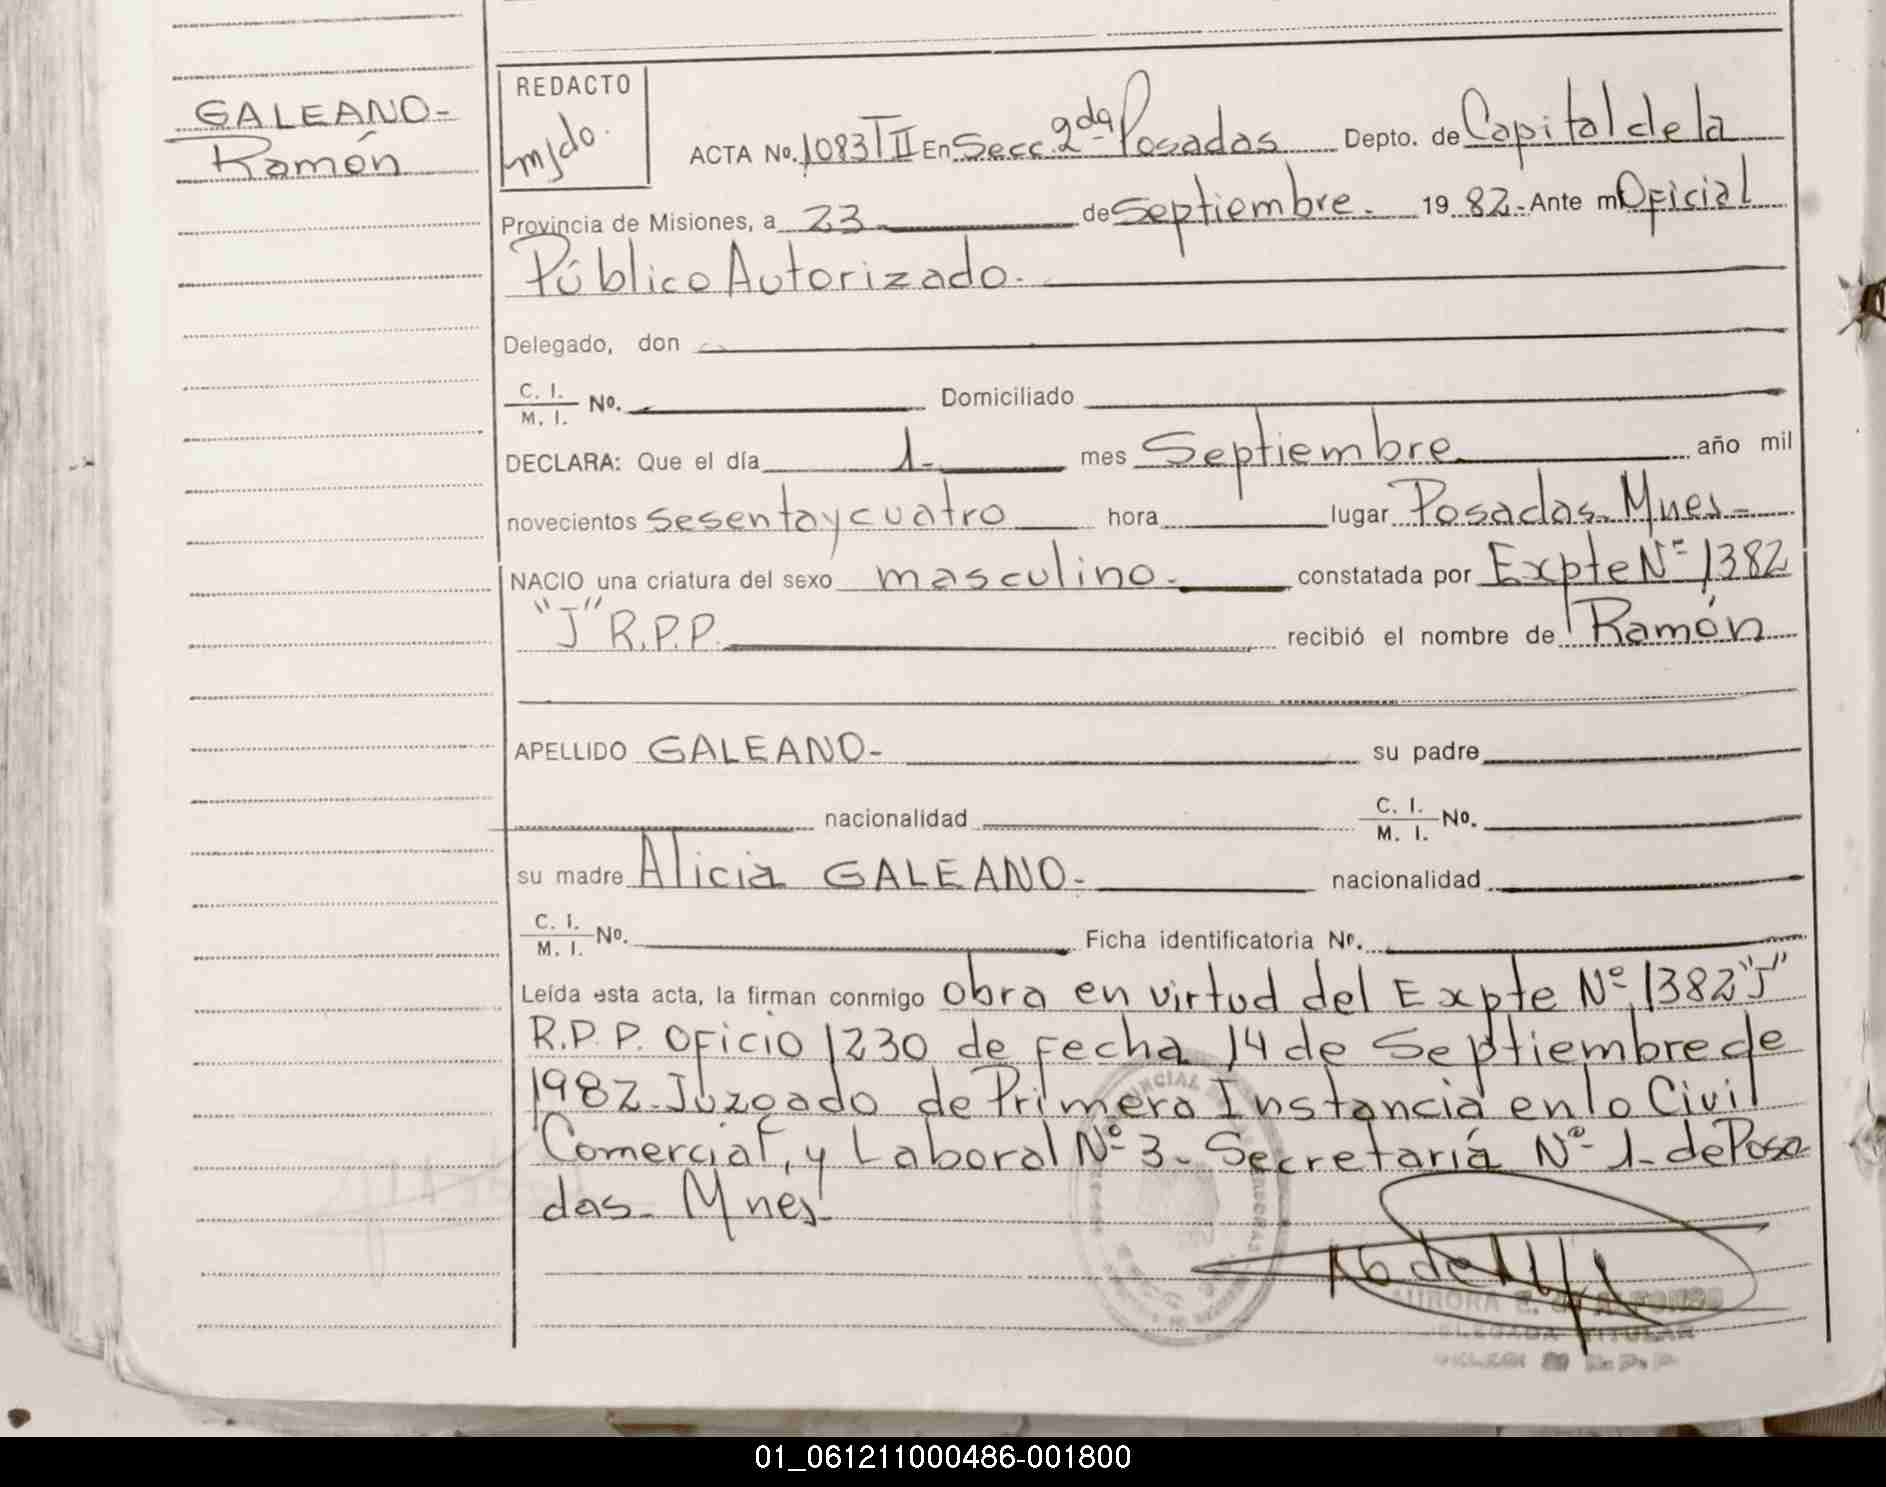 GALEANO-
Ramón
REDACTO
m/do.
ACTA No. 1083 TII En Secc. 2da Posadas Depto. de Capital de la
Provincia de Misiones, a 23 de Septiembre. 19 82.- Ante mí Oficial
Público Autorizado.
Delegado, don
C. I.
M. I. No. Domiciliado
DECLARA: Que el día 1- mes Septiembre año mil
novecientos sesentaycuatro hora lugar Posadas Mnes-
NACIO una criatura del sexo masculino. constatada por Expte Nº 1382
"J" R.P.P. recibió el nombre de Ramón
APELLIDO GALEANO- su padre
nacionalidad C. I.
M. I. No.
su madre Alicia GALEANO- nacionalidad
C. I.
M. I. No. Ficha identificatoria No.
Leída esta acta, la firman conmigo obra en virtud del Expte Nº 1382 "J"
R.P.P. oficio 1230 de fecha 14 de Septiembre de
1982 Juzgado de Primera Instancia en lo Civil
Comercial, y Laboral Nº 3- Secretaría Nº 1- de Posa
das- Mnes.
AURORA E.
DELEGADA TITULAR
R.P.P.
01_061211000486-001800